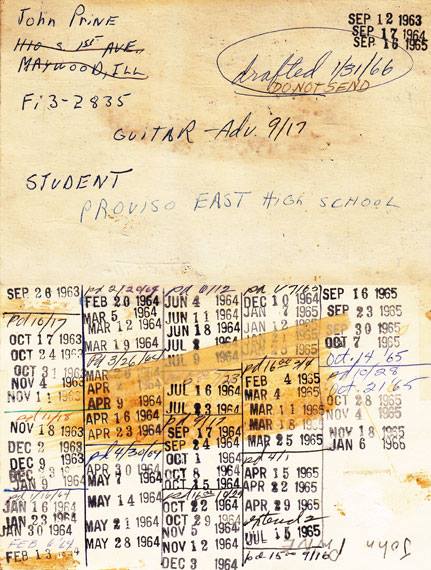 John Prine
SEP 12 1963
SEP 17 1964
SEP 16 1965
H10 S 1ST AVE,
MAYWOOD, ILL
drafted 1/31/66
DO NOT SEND
Fi3-2835
GUITAR - Adv. 9/17
STUDENT
PROVISO EAST HIGH SCHOOL
SEP 26 1963
pd 10/17
OCT 17 1963
OCT 24 1963
OCT 31 1963
NOV 4 1963
NOV 11 1963
NOV 18 1963
DEC 2 1963
DEC 9 1963
JAN 9 1964
pd 1/16/64
JAN 16 1964
JAN 23 1964
JAN 30 1964
FEB 6 64
FEB 13 1964
FEB 20 1964
MAR 5 1964
MAR 12 1964
MAR 19 1964
Pd 3/26/64
MAR
APR
APR 9 1964
APR 16 1964
APR 23 1964
pd 4/30/64
APR 30 1964
MAY 7 1964
MAY 14 1964
MAY 21 1964
MAY 28 1964
JUN 4 1964
JUN 11 1964
JUN 18 1964
JUL 2 1964
JUL 9 1964
JUL 16 1964
JUL 23 1964
SEP 17 1964
SEP 24 1964
OCT 1 1964
OCT 8 1964
OCT 15 1964
OCT 22 1964
OCT 29 1964
NOV 5 1964
NOV 12 1964
DEC 3 1964
DEC 10 1964
JAN 7 1965
JAN 1965
JAN 21 1965
FEB 4 1965
MAR 4 1965
MAR 11 1965
MAR 18 1965
MAR 25 1965
pd 4/1
APR 15 1965
APR 22 1965
APR 29 1965
JUL 15 1965
pd 15 9/16
SEP 16 1965
SEP 23 1965
SEP 30 1965
OCT 7 1965
Oct. 14 '65
pd 10/28
Oct. 21 '65
OCT 28 1965
NOV 4 1965
NOV 18 1965
JAN 6 1966
John Prine